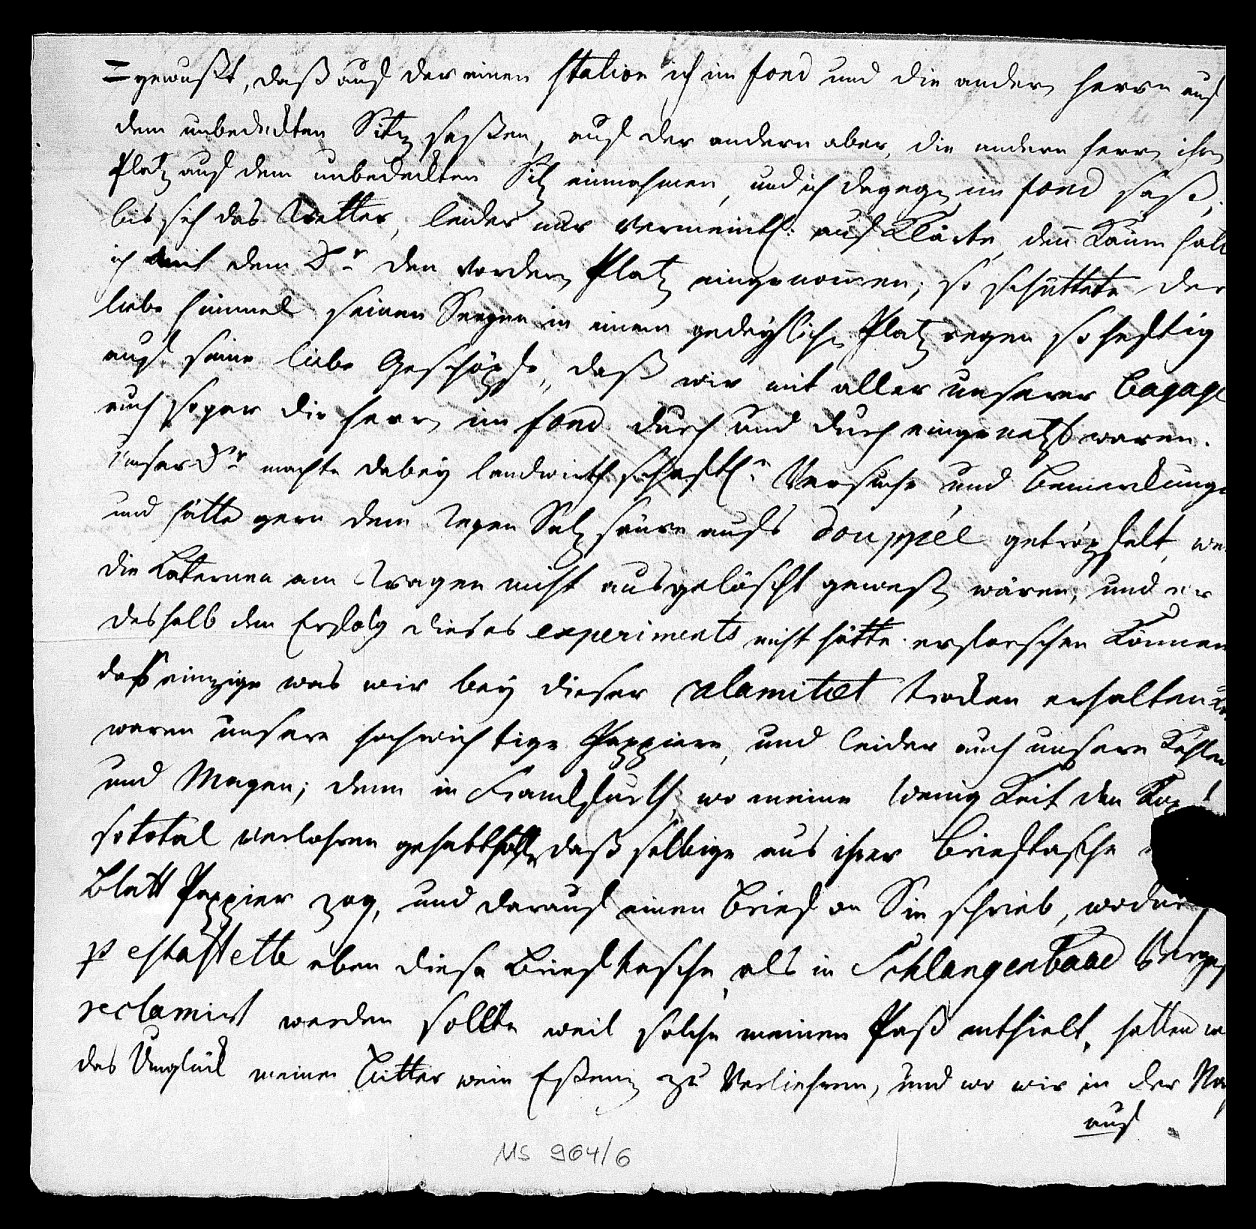 =gewußt, daß auf der einen station ich im fond und die andern Herrn auf
dem unbedeckten Sitz saßen, auf der andern aber, die andern Herrn ihren
Platz auf dem unbedeckten Sitz einnahmen, und ich dagegen im fond saß,
bis sich das Wetter, leider nur vermeintl: aufklärte, den̄ kaum hatte
ich mit dem Dr den vordern Platz eingenom̄en, so schüttete der
liebe Himmel seinen Seegen in einem gedeyhlichen Platzregen so heftig
auf seine liebe Geschöpfe, daß wir mit aller unserer bagage
auch sogar die Herrn im fond durch und durch eingenetzt waren.
Unser Dr machte dabey landwirthschaftln Versuche und Bemerkungen
und hätte gern dem Regen Salzsäure aufs douppel getröpfelt, wenn
die Laternen am Wagen nicht ausgelöscht geweßen wären, und er
deshalb den Erfolg dieses experiments nicht hätte erforschen können
das einzige was wir bey dieser calamitæt trocken erhalten
waren unsere hochwichtige Pappiere, und leider auch unsere Kehlen
und Magen; denn in Franckfurth, wo meine Wenigkeit den Kopf
so total verlohren gehabt daß selbige aus ihrer Brieftasche
Blatt Pappier zog, und darauf einen Brief an Sie schrieb, wodurch
p estaffette eben diese Brieftasche, als in Schlangenbaad
reclamirt werden sollte weil solche meinen Paß enthielt, hatten wir
das Unglück meinen Bitter wein Eßenz zu verliehren, und wo wir in der
auf
MS 964/6